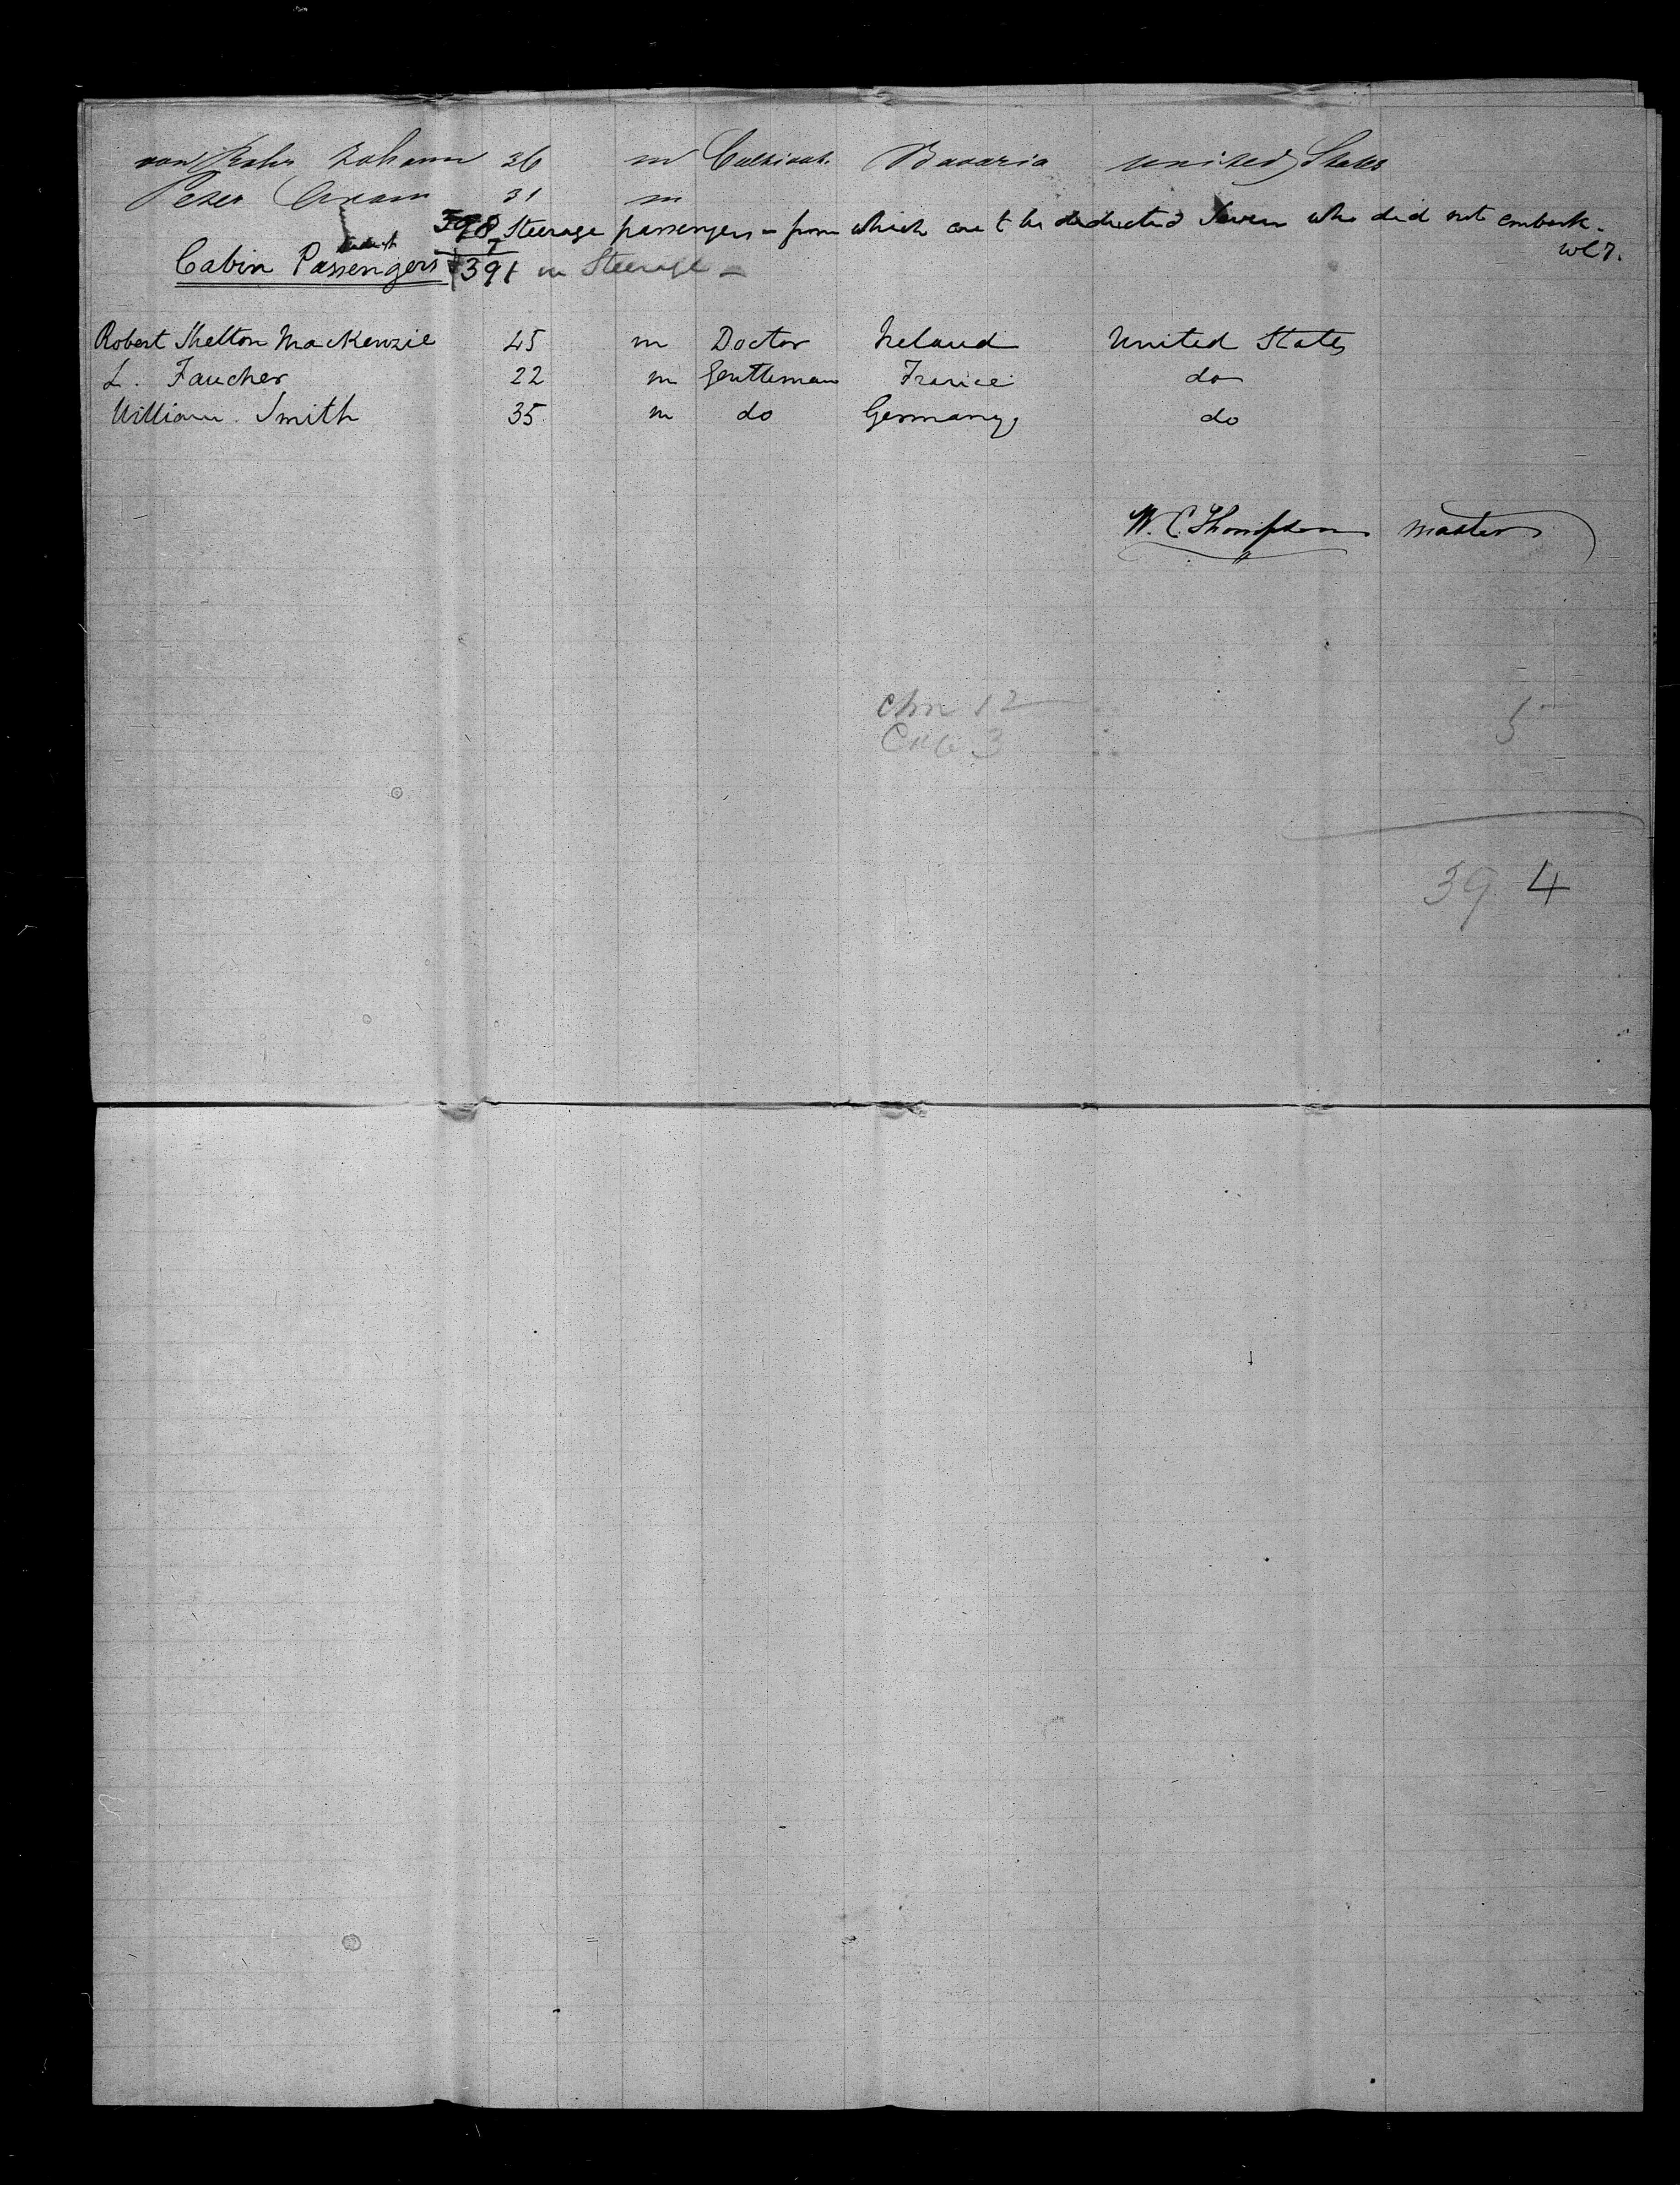 Johann 26 m Cultivat. Bavaria United States
Peter 31 m
398 Steerage passengers - from which are to be deducted Seven who did not embark -
7 WCT.
Cabin Passengers 391 in Steerage -
Robert Shelton MacKenzie 45 m Doctor Ireland United States
L. Faucher 22 m Gentleman France do
William Smith 35 m do Germany do
W. C. Thompson Master
12 5
3
394